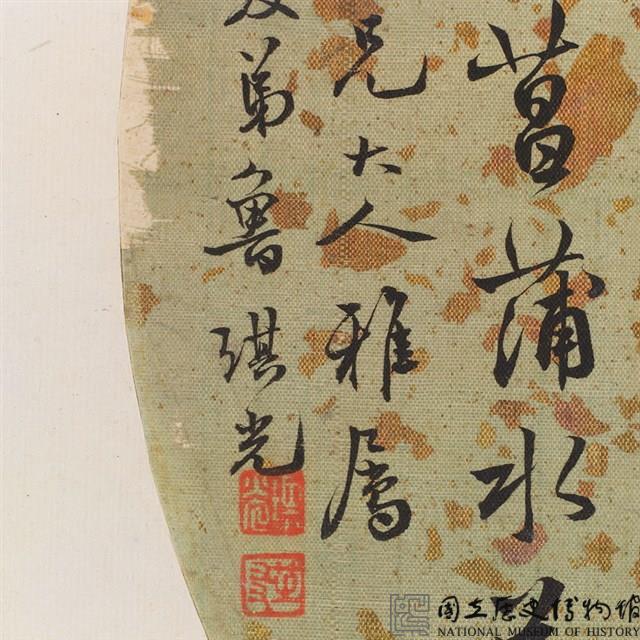 菖蒲水
兄大人雅屬
弟魯琪光
國立歷史博物館
NATIONAL MUSEUM OF HISTORY